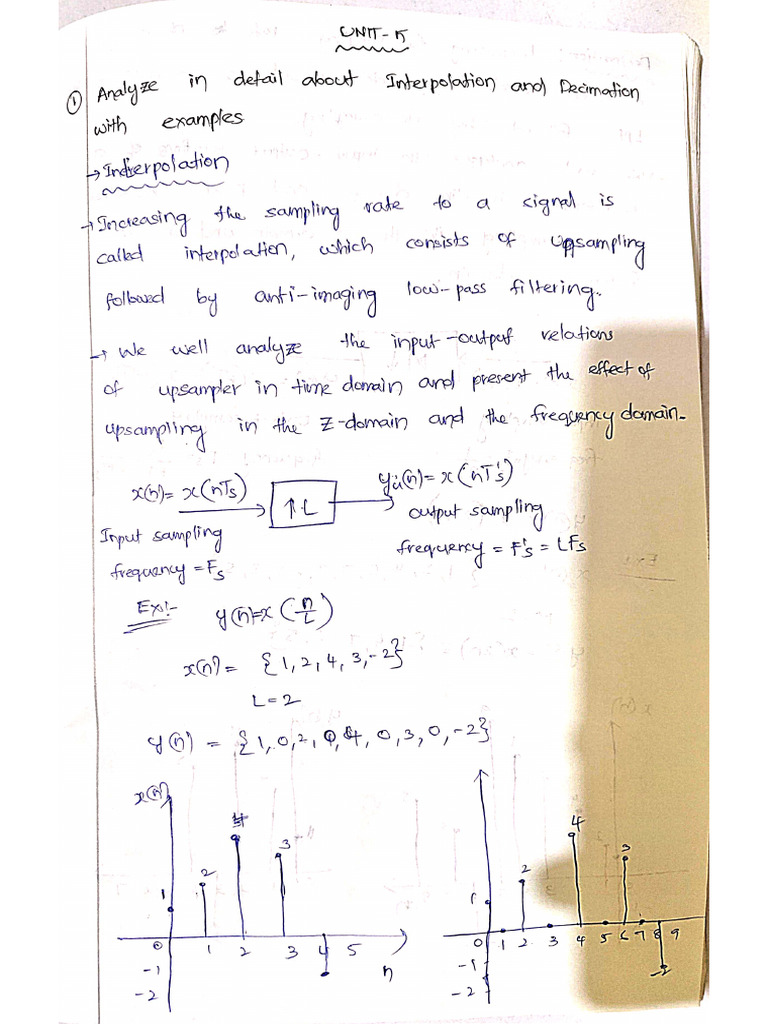 UNIT-5
① Analyze in detail about Interpolation and Decimation
with examples
→ Interpolation
→ Increasing the sampling rate to a signal is
called interpolation, which consists of upsampling
followed by anti-imaging low-pass filtering.
→ We well analyze the input-output relations
of upsampler in time domain and present the effect of
upsampling in the Z-domain and the frequency domain.
x(n) = x(nTs) ↑L yu(n) = x(nT's)
Input sampling
frequency = Fs
output sampling
frequency = F's = LFs
Ex:- y(n)=x(n/L)
x(n) = {1, 2, 4, 3, -2}
L = 2
y(n) = {1, 0, 2, 0, 4, 0, 3, 0, -2}
x(n)
4
3
2
1
0 1 2 3 4 5
n
-1
-2
4
3
2
1
0 1 2 3 4 5 6 7 8 9
-1
-2
-2